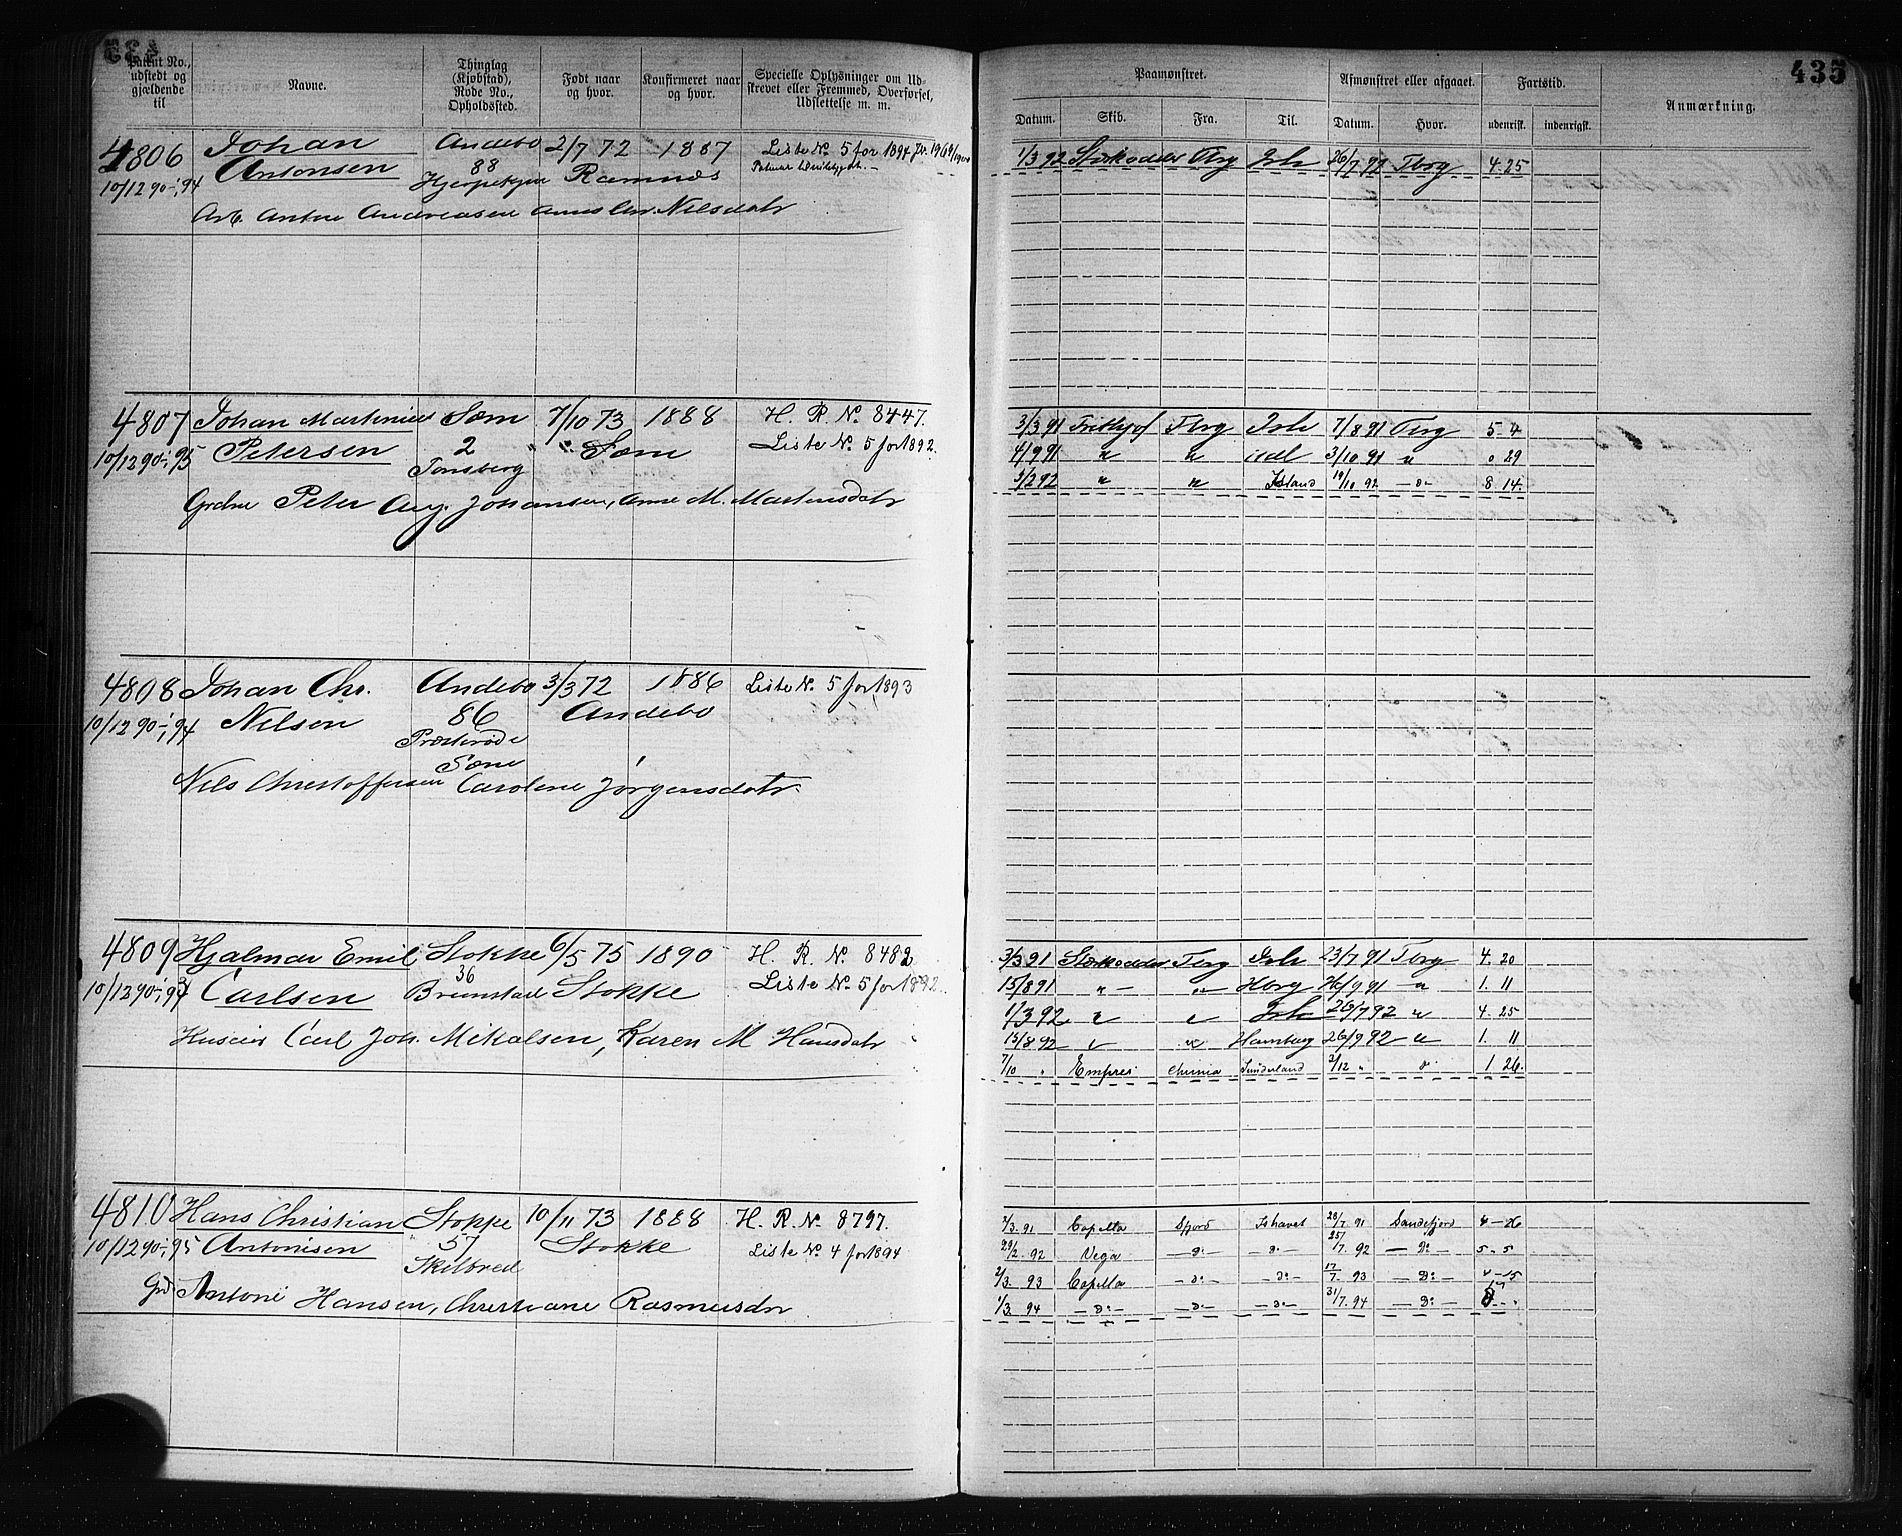 435
Patent No., udstedt og gjældende til
Navne.
Thinglag (Kjøbstad), Rode No., Opholdssted.
Født naar og hvor.
Konfirmeret naar og hvor.
Specielle Oplysninger om Udstrevet eller Fremmed, Overførsel, Udslettelse m. m.
Paamønstret.
Afmønstret eller afgaaet.
Fartstid.
Anmærkning.
Datum. Skib. Fra. Til. Datum. Hvor. udenrikst. indenrigst.
4806 Johan Andebo 2/7 72 1887 Liste No. 5 for 1894
10/12 90-; 94 Antonsen 88 Ramnæs
Arb. Anton Andreasen Nilsdatr
1/3 92 Tbrg Ish 26/7 92 Tbrg 4. 25
4807 Johan Martinius Sæm 7/10 73 1888 H. R. No. 8447.
10/12 90-; 95 Petersen 2 Sæm Liste No. 5 for 1892.
Tønsberg
Peter Aug. Johansen, Anne M. Martensdatr
3/3 91 Frithjof Tbrg Ish 7/8 91 Tbrg 5 4
4/9 91 " " 3/10 91 " 0 29
5/2 92 " " Island 19/10 92 -d- 8 14.
4808 Johan Chr. Andebo 3/3 72 1886 Liste No. 5 for 1893
10/12 90-; 94 Nilsen 86 Andebo
Præsterøde
Sæm
Nils Christoffersen Caroline Jørgensdatr.
4809 Hjalmar Emil Stokke 6/5 75 1890 H. R. No. 8482
10/12 90-; 94 Carlsen 36 Brunstad Stokke Liste No. 5 for 1892.
Carl Joh. Mikalsen, Karen M Hansdatr
3/3 91 Tbrg Ish 23/7 91 Tbrg 4. 20
15/8 91 " " Hbrg 26/9 91 " 1. 11
1/3 92 " " Ish 26/7 92 " 4. 25
15/8 92 " " Hamburg 26/9 92 " 1. 11
7/10 " Empres Sunderland 2/12 " d 1 26.
4810 Hans Christian Stokke 10/11 73 1888 H. R. No. 8797.
10/12 90-; 95 Antonisen 57 Stokke Liste No. 4 for 1894
Skilbred
Grd. Antoni Hansen, Christiane Rasmusdr
2/3. 91 Capella Sfjord Ishavet 28/7. 91 Sandefjord 4-26
29/2. 92 Vega -D:- -D:- 25/7. 92 -D:- 5. 5
2/3. 93 Capella -D:- -D:- 17/7. 93 -D:- 4-15
1/3. 94 -D:- -D:- -D:- 31/7. 94 -D:-